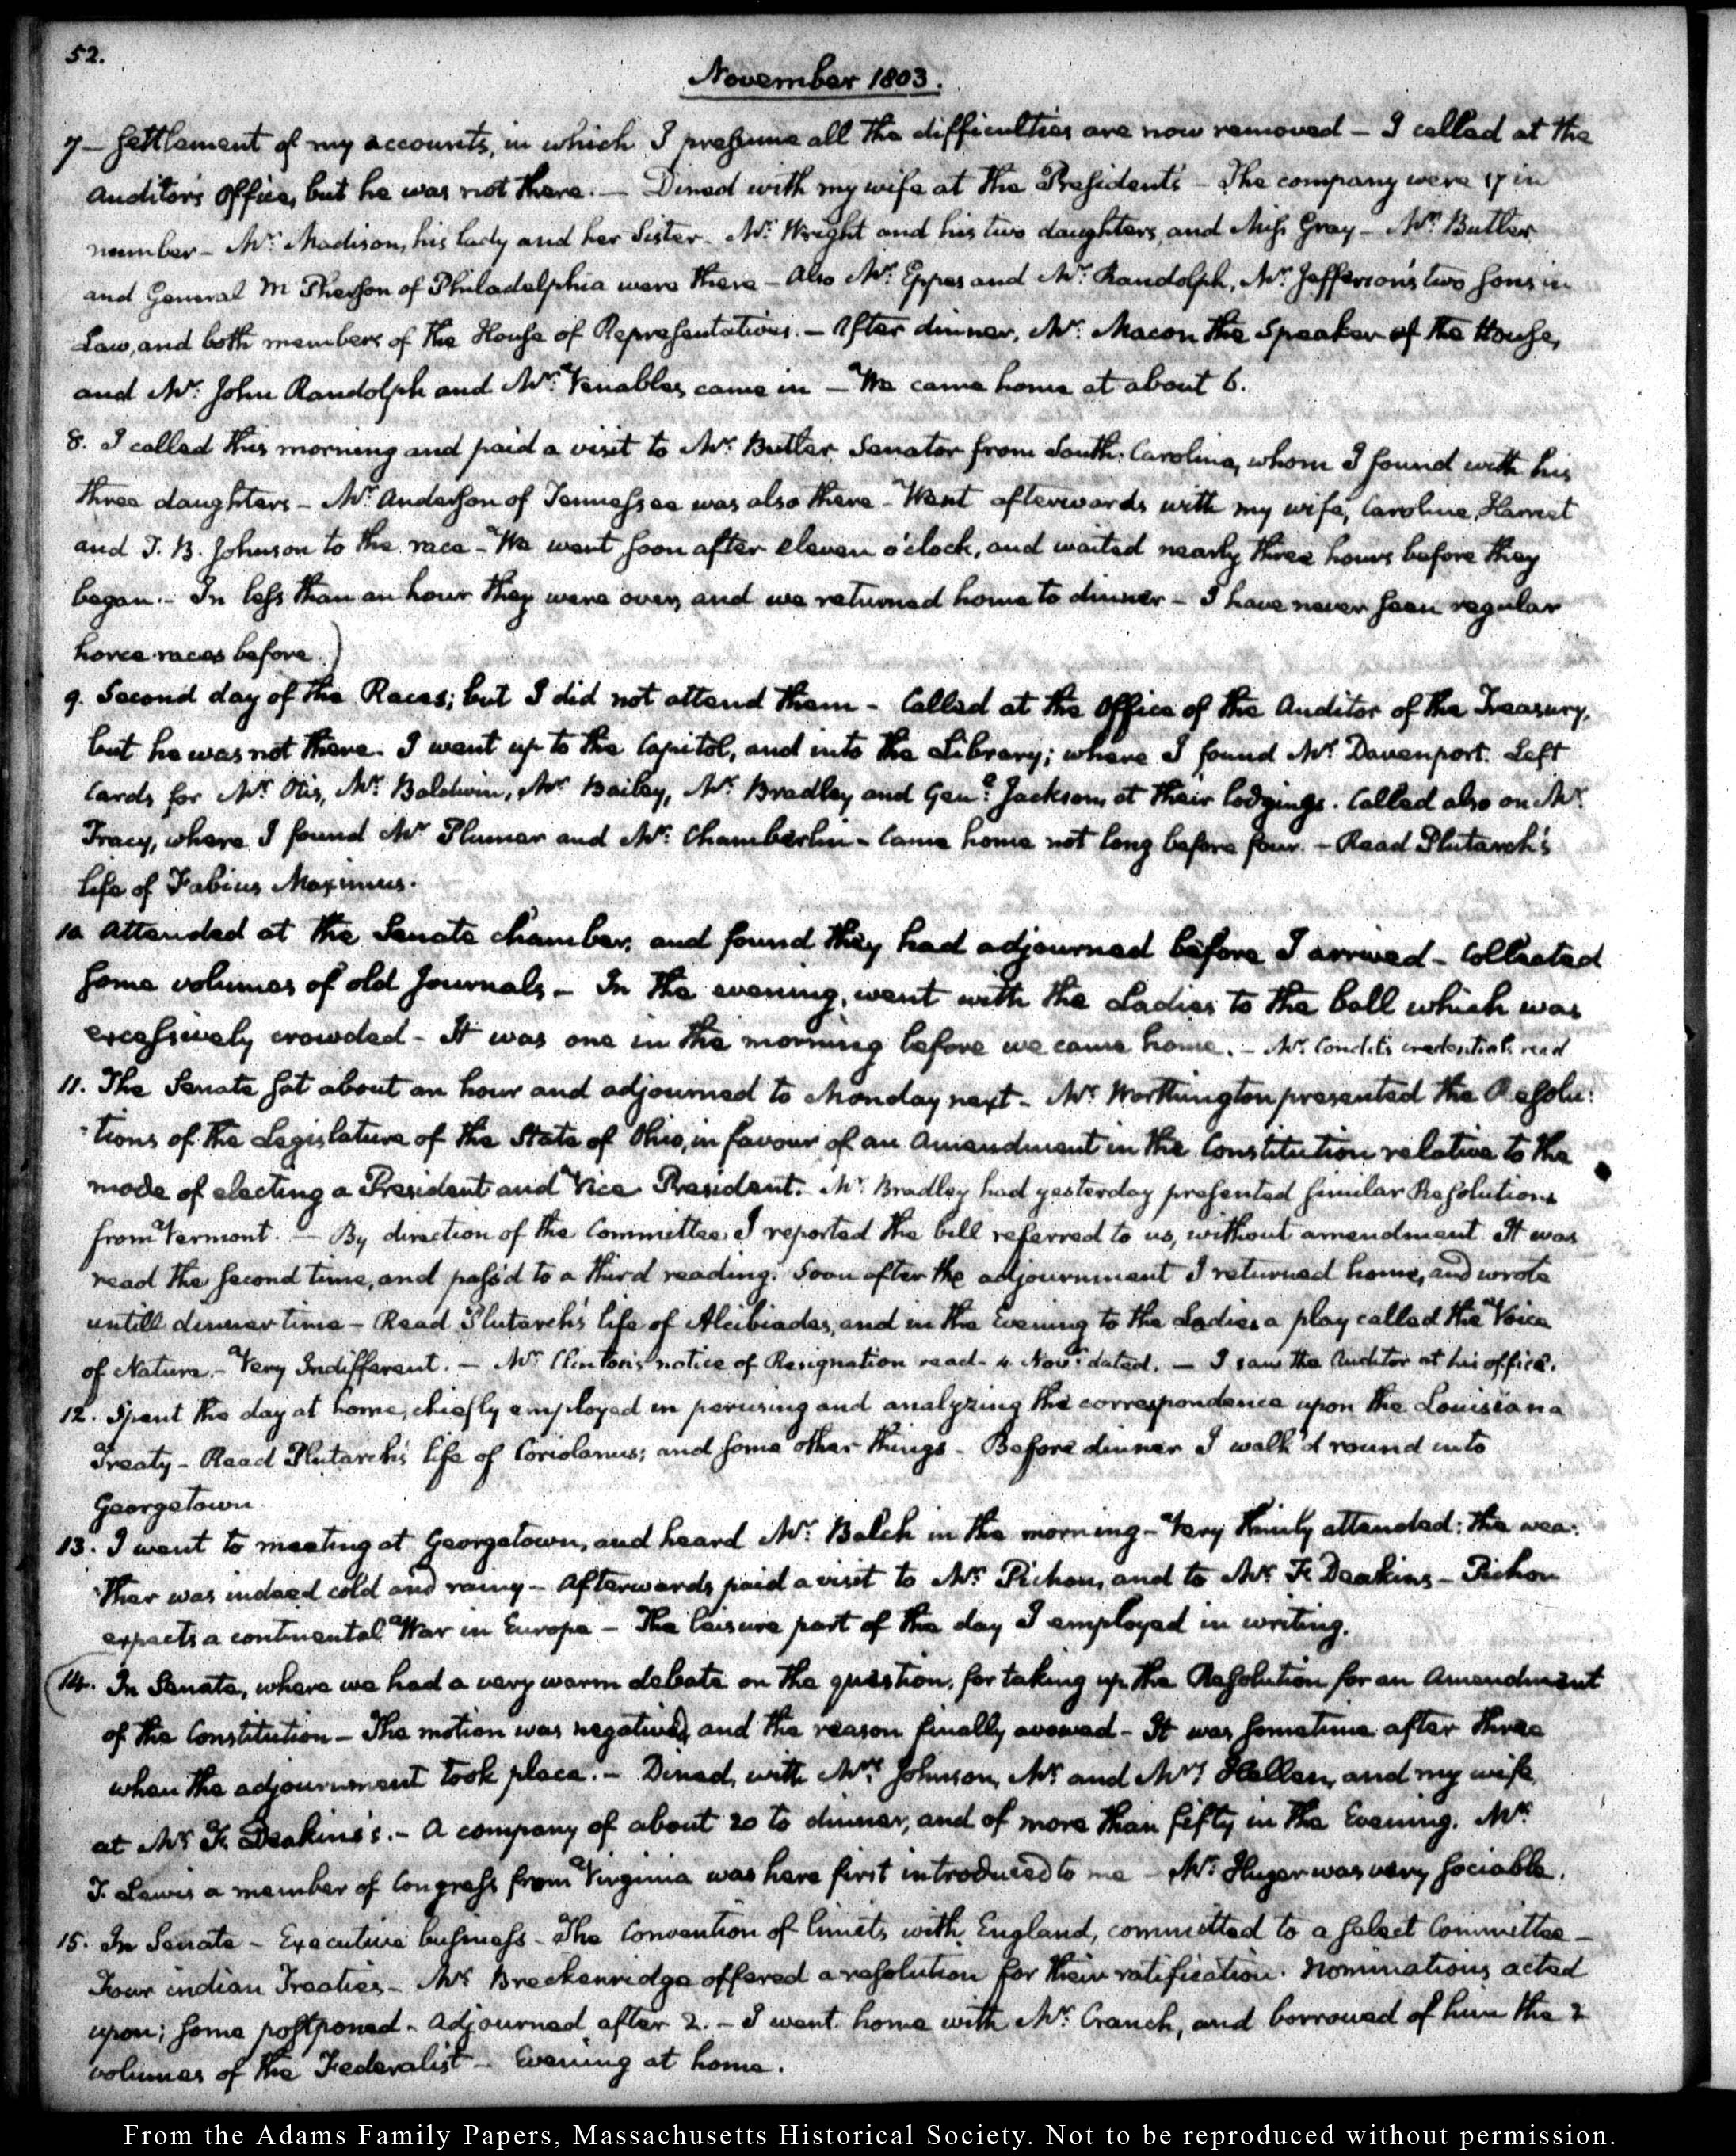 52.
November 1803.
7 — Settlement of my accounts, in which I presume all the difficulties are now removed — I called at the
Auditor's Office, but he was not there. — Dined with my wife at the President's — The company were 17 in
number — Mr. Madison, his lady and her Sister — Mr. Wright and his two daughters, and Miss Gray — Mr. Butler
and General McPherson of Philadelphia were there — Also Mr. Eppes and Mr. Randolph, Mr. Jefferson's two Sons in
Law, and both members of the House of Representatives. — After dinner, Mr. Macon the Speaker of the House,
and Mr. John Randolph and Mr. Venables came in — We came home at about 6.
8. I called this morning and paid a visit to Mr. Butler, Senator from South-Carolina, whom I found with his
three daughters — Mr. Anderson of Tennessee was also there — Went afterwards with my wife, Caroline, Harriet
and T. B. Johnson to the race — We went soon after eleven o'clock, and waited nearly three hours before they
began. — In less than an hour they were over, and we returned home to dinner — I have never seen regular
horce-races before.)
9. Second day of the Races; but I did not attend them — Called at the Office of the Auditor of the Treasury,
but he was not there. I went up to the Capitol, and into the Library; where I found Mr. Davenport. Left
Cards for Mr. Otis, Mr. Baldwin, Mr. Bailey, Mr. Bradley and Genl. Jackson, at their lodgings. Called also on Mr.
Tracy, where I found Mr. Plumer and Mr. Chamberlin — Came home not long before four. — Read Plutarch's
life of Fabius Maximus.
10. Attended at the Senate chamber, and found they had adjourned before I arrived — Collected
some volumes of old Journals — In the evening, went with the Ladies to the ball which was
excessively crowded — It was one in the morning before we came home. — Mr. Condit's credentials read
11. The Senate sat about an hour and adjourned to Monday next — Mr. Worthington presented the Resolu:
:tions of the Legislature of the State of Ohio, in favour of an Amendment in the Constitution relative to the
mode of electing a President and Vice President. Mr. Bradley had yesterday presented similar Resolutions
from Vermont. — By direction of the Committee, I reported the bill referred to us, without amendment. It was
read the second time, and pass'd to a third reading. Soon after the adjournment I returned home, and wrote
untill dinner time — Read Plutarch's life of Alcibiades, and in the Evening to the Ladies a play called the Voice
of Nature. — Very Indifferent. — Mr. Clinton's notice of Resignation read — 4. Novr. dated. — I saw the Auditor at his office.
12. Spent the day at home, chiefly employed in perusing and analyzing the correspondence upon the Louisiana
Treaty — Read Plutarch's life of Coriolanus; and some other things — Before dinner I walk'd round into
Georgetown.
13. I went to meeting at Georgetown, and heard Mr. Balch in the morning — Very thinly attended: the wea:
:ther was indeed cold and rainy — Afterwards paid a visit to Mr. Pichon, and to Mr. F. Deakins — Pichon
expects a continental War in Europe — The leisure part of the day I employed in writing.
14. In Senate, where we had a very warm debate on the question, for taking up the Resolution for an Amendment
of the Constitution — The motion was negatived, and the reason finally avowed — It was sometime after three
when the adjournment took place. — Dined, with Mrs. Johnson, Mr. and Mrs. Hellen, and my wife,
at Mr. F. Deakins's. — A company of about 20 to dinner, and of more than fifty in the Evening. Mr.
T. Lewis a member of Congress from Virginia was here first introduced to me — Mr. Huger was very sociable.
15. In Senate — Executive business — The Convention of limits with England, committed to a select Committee —
Four indian Treaties — Mr. Breckenridge offered a resolution for their ratification. Nominations acted
upon; some postponed — Adjourned after 2. — I went home with Mr. Cranch, and borrowed of him the 2
volumes of the Federalist — Evening at home.
From the Adams Family Papers, Massachusetts Historical Society. Not to be reproduced without permission.